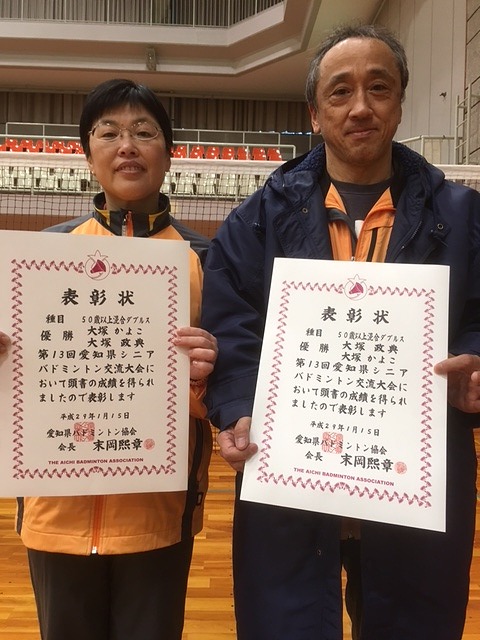 表彰状
種目 50歳以上混合ダブルス
優勝 大塚 かよこ
大塚 政典
第13回愛知県シニア
バドミントン交流大会に
おいて頭書の成績を得られ
ましたので表彰します
平成29年1月15日
愛知県バドミントン協会
会長 末岡熙章
THE AICHI BADMINTON ASSOCIATION
表彰状
種目 50歳以上混合ダブルス
優勝 大塚 政典
大塚 かよこ
第13回愛知県シニア
バドミントン交流大会に
おいて頭書の成績を得られ
ましたので表彰します
平成29年1月15日
愛知県バドミントン協会
会長 末岡熙章
THE AICHI BADMINTON ASSOCIATION